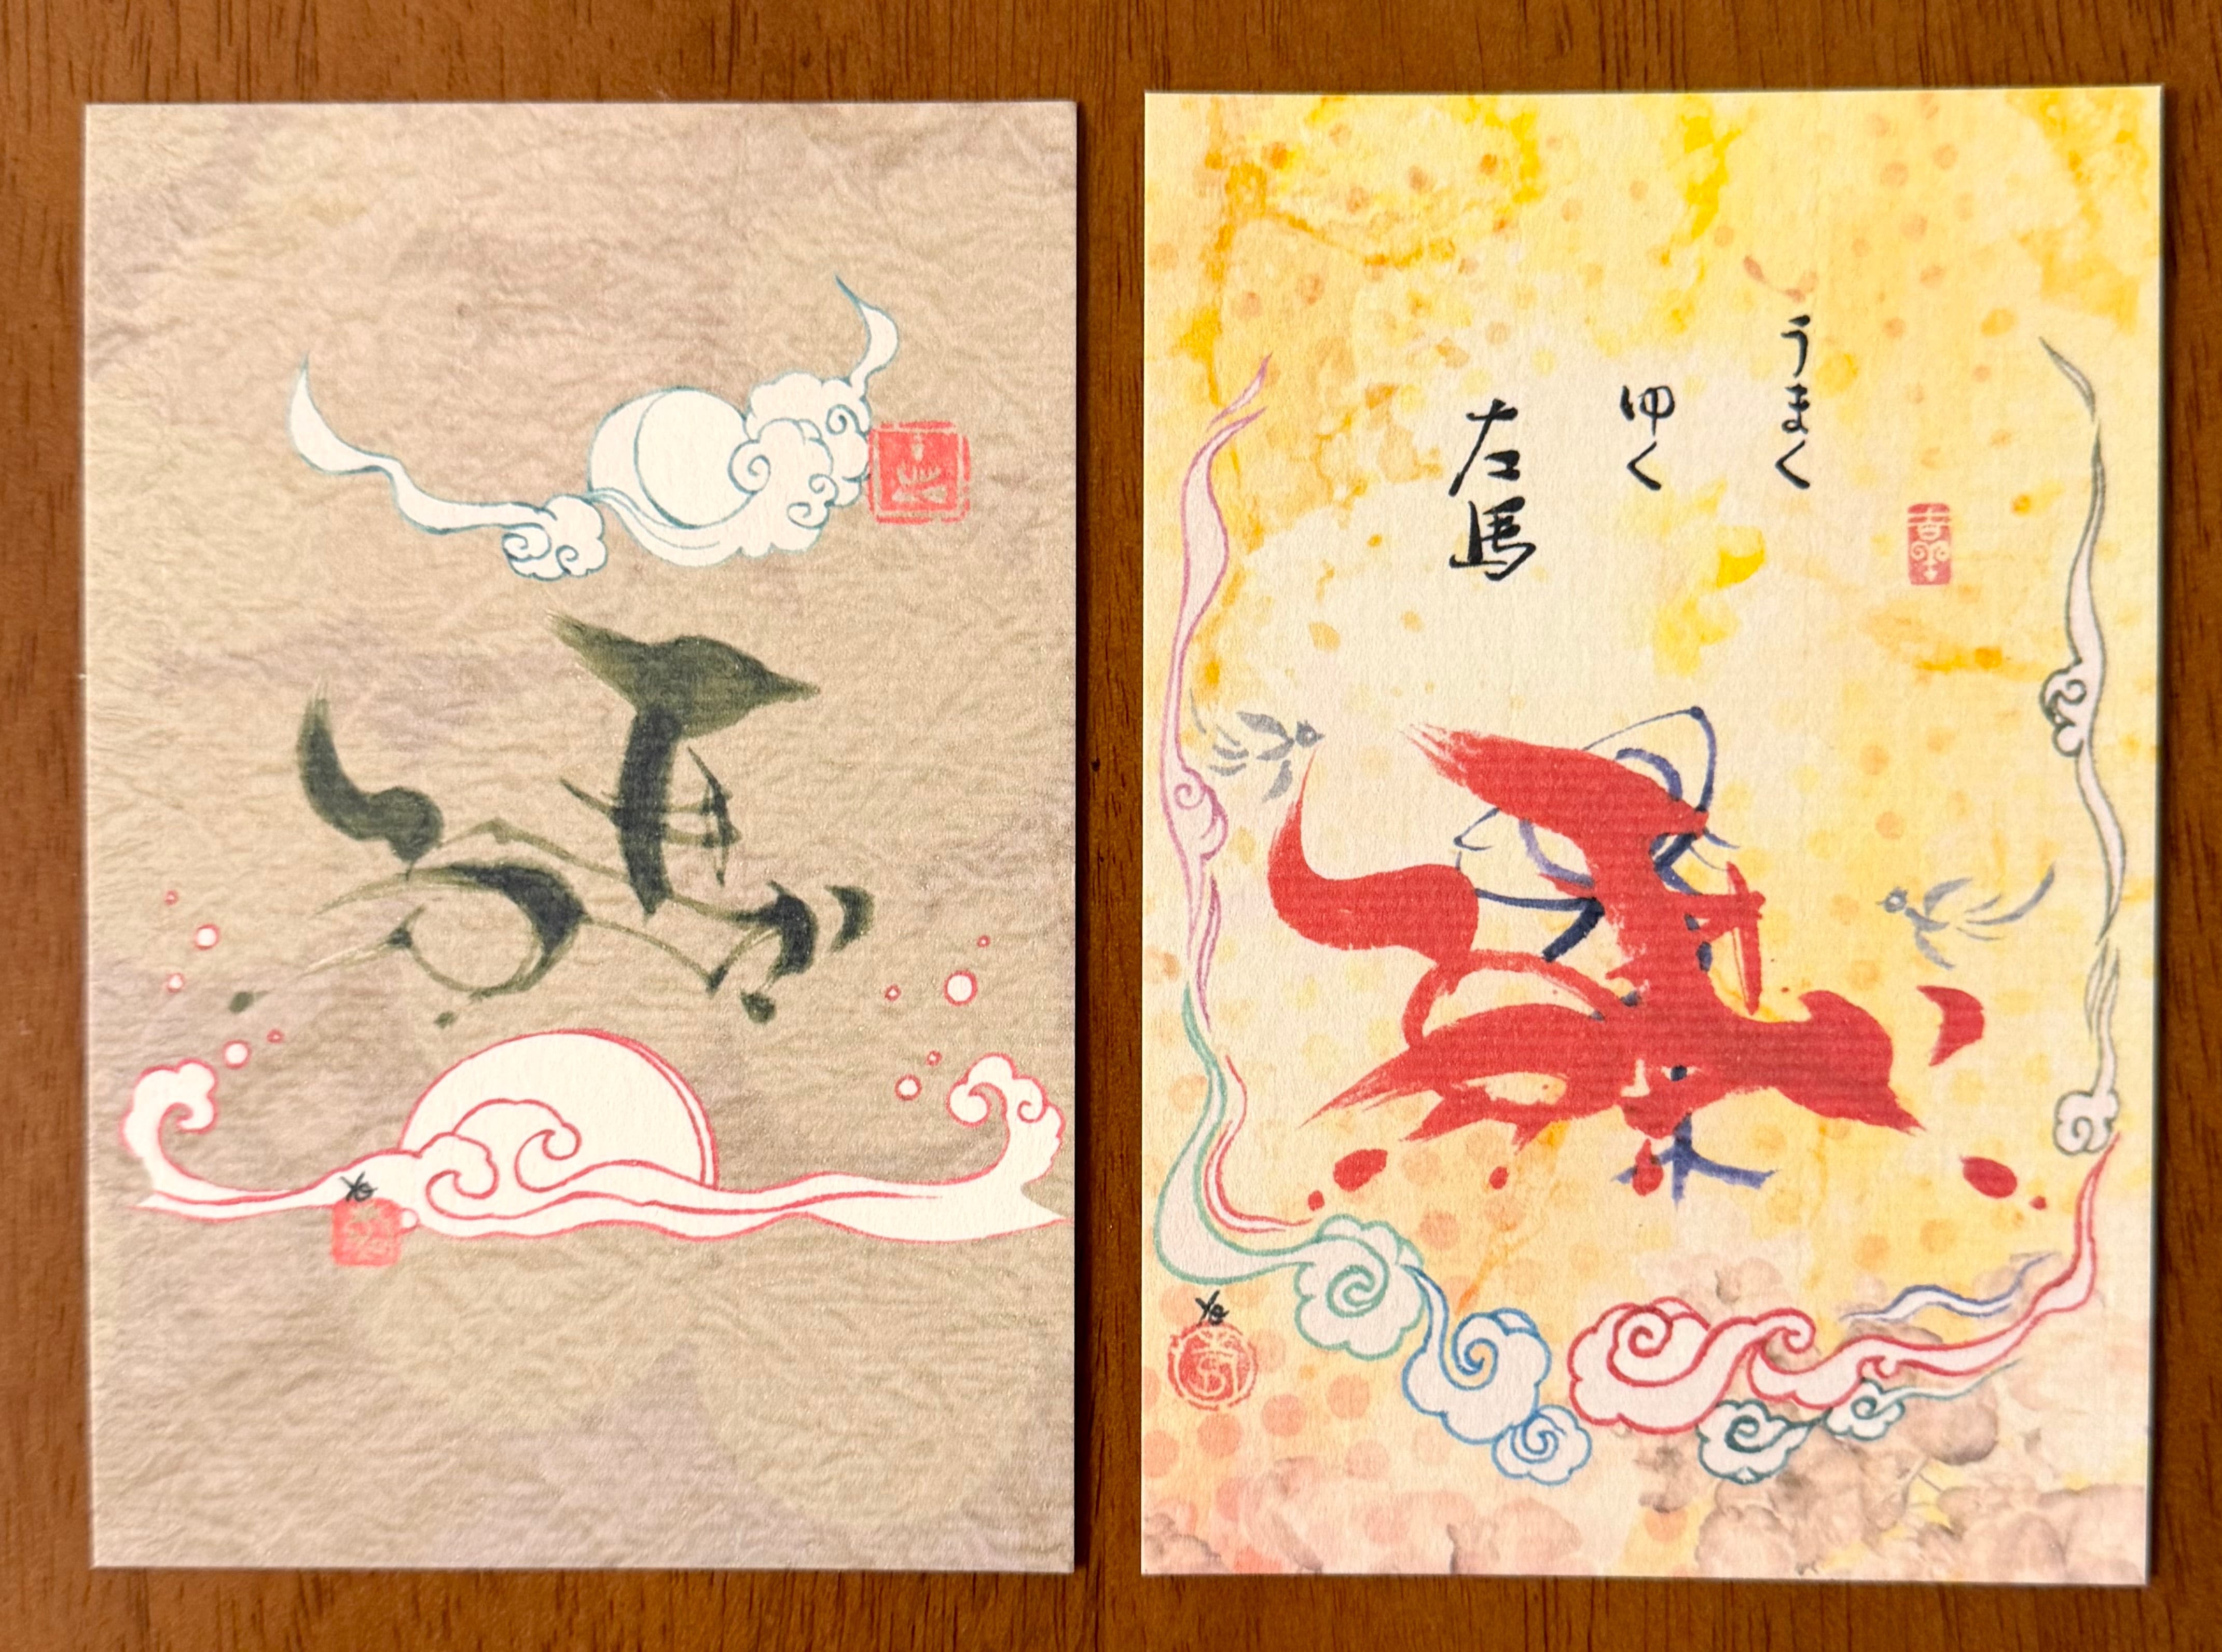 うまく
ゆく
左馬